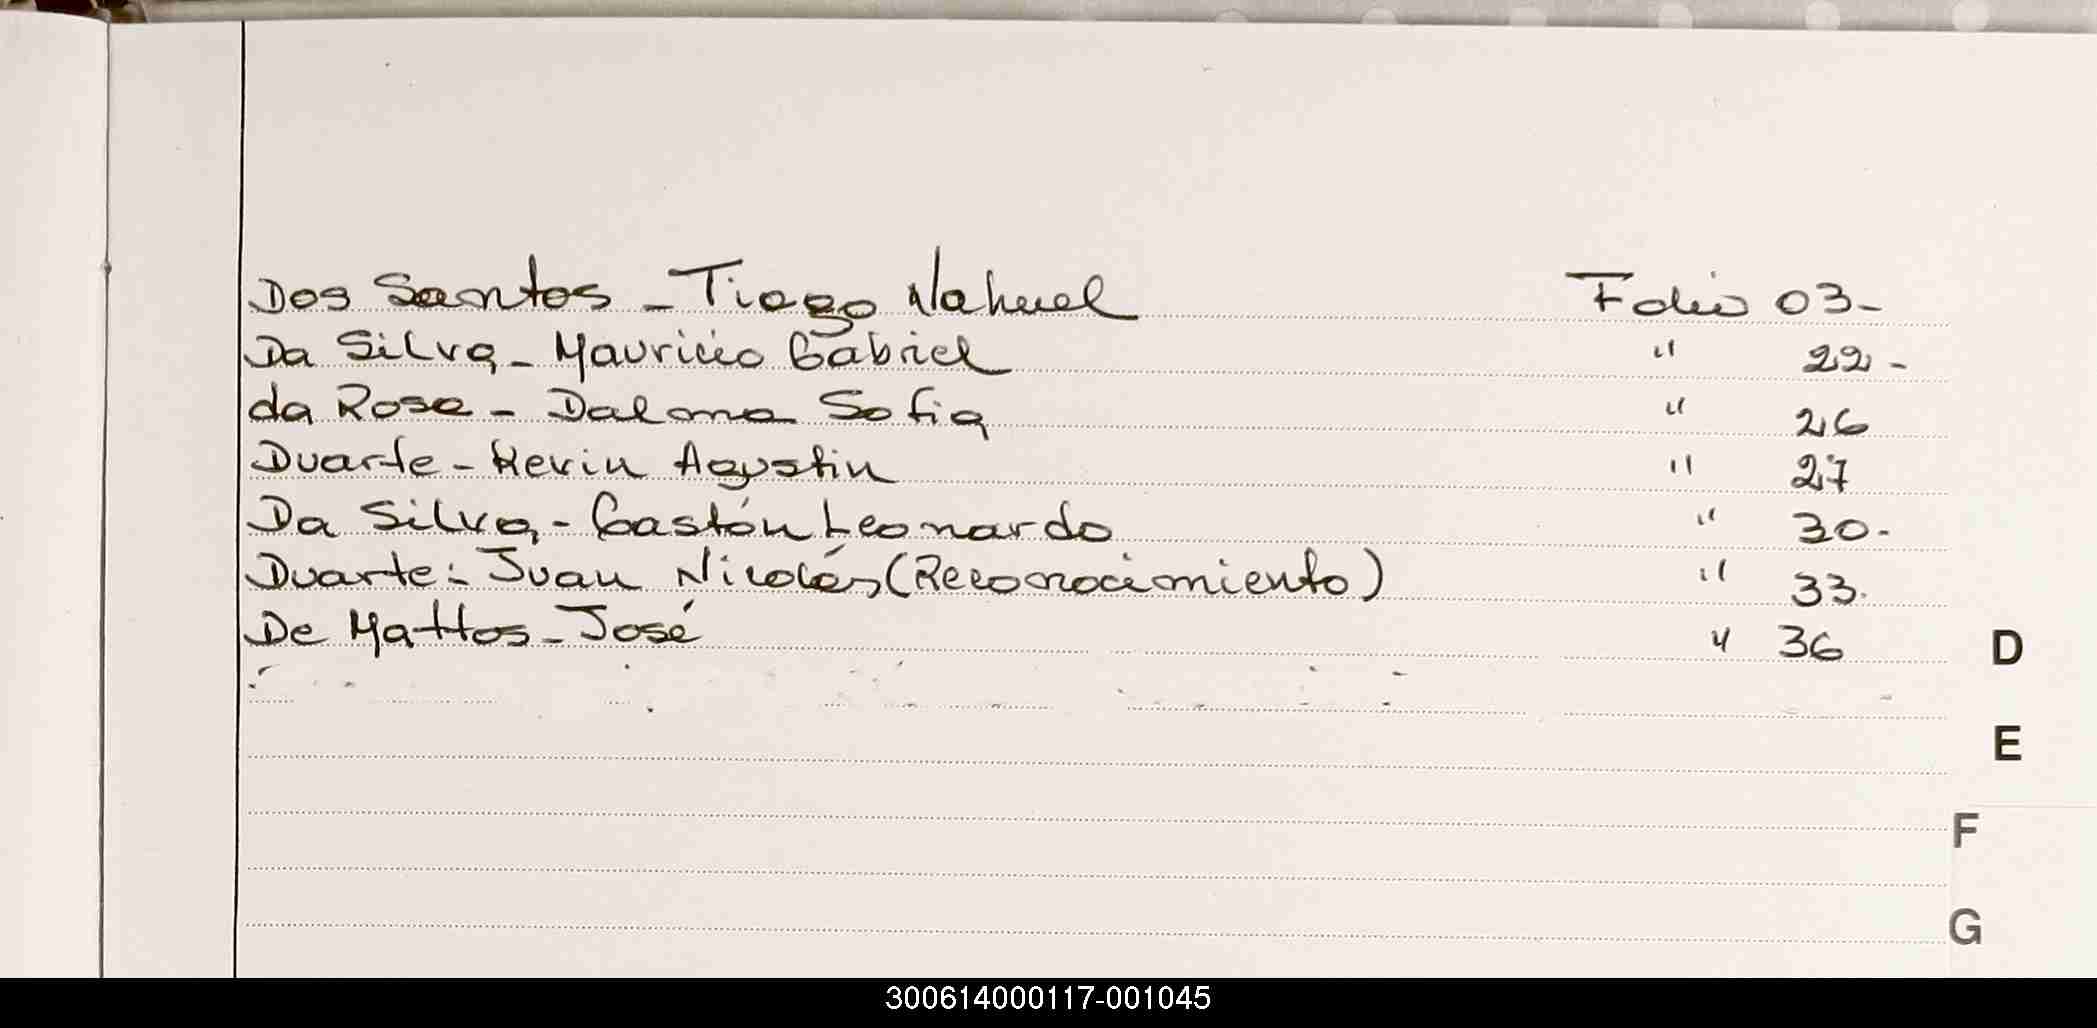 Dos Santos - Tiago Nahuel Folio 03-
Da Silva - Mauricio Gabriel " 22-
da Rosa - Dalma Sofia " 26
Duarte - Kevin Agustin " 27
Da Silva - Gastón Leonardo " 30-
Duarte - Juan Nicolás (Reconocimiento) " 33.
De Mattos - José " 36
D
E
F
G
300614000117-001045